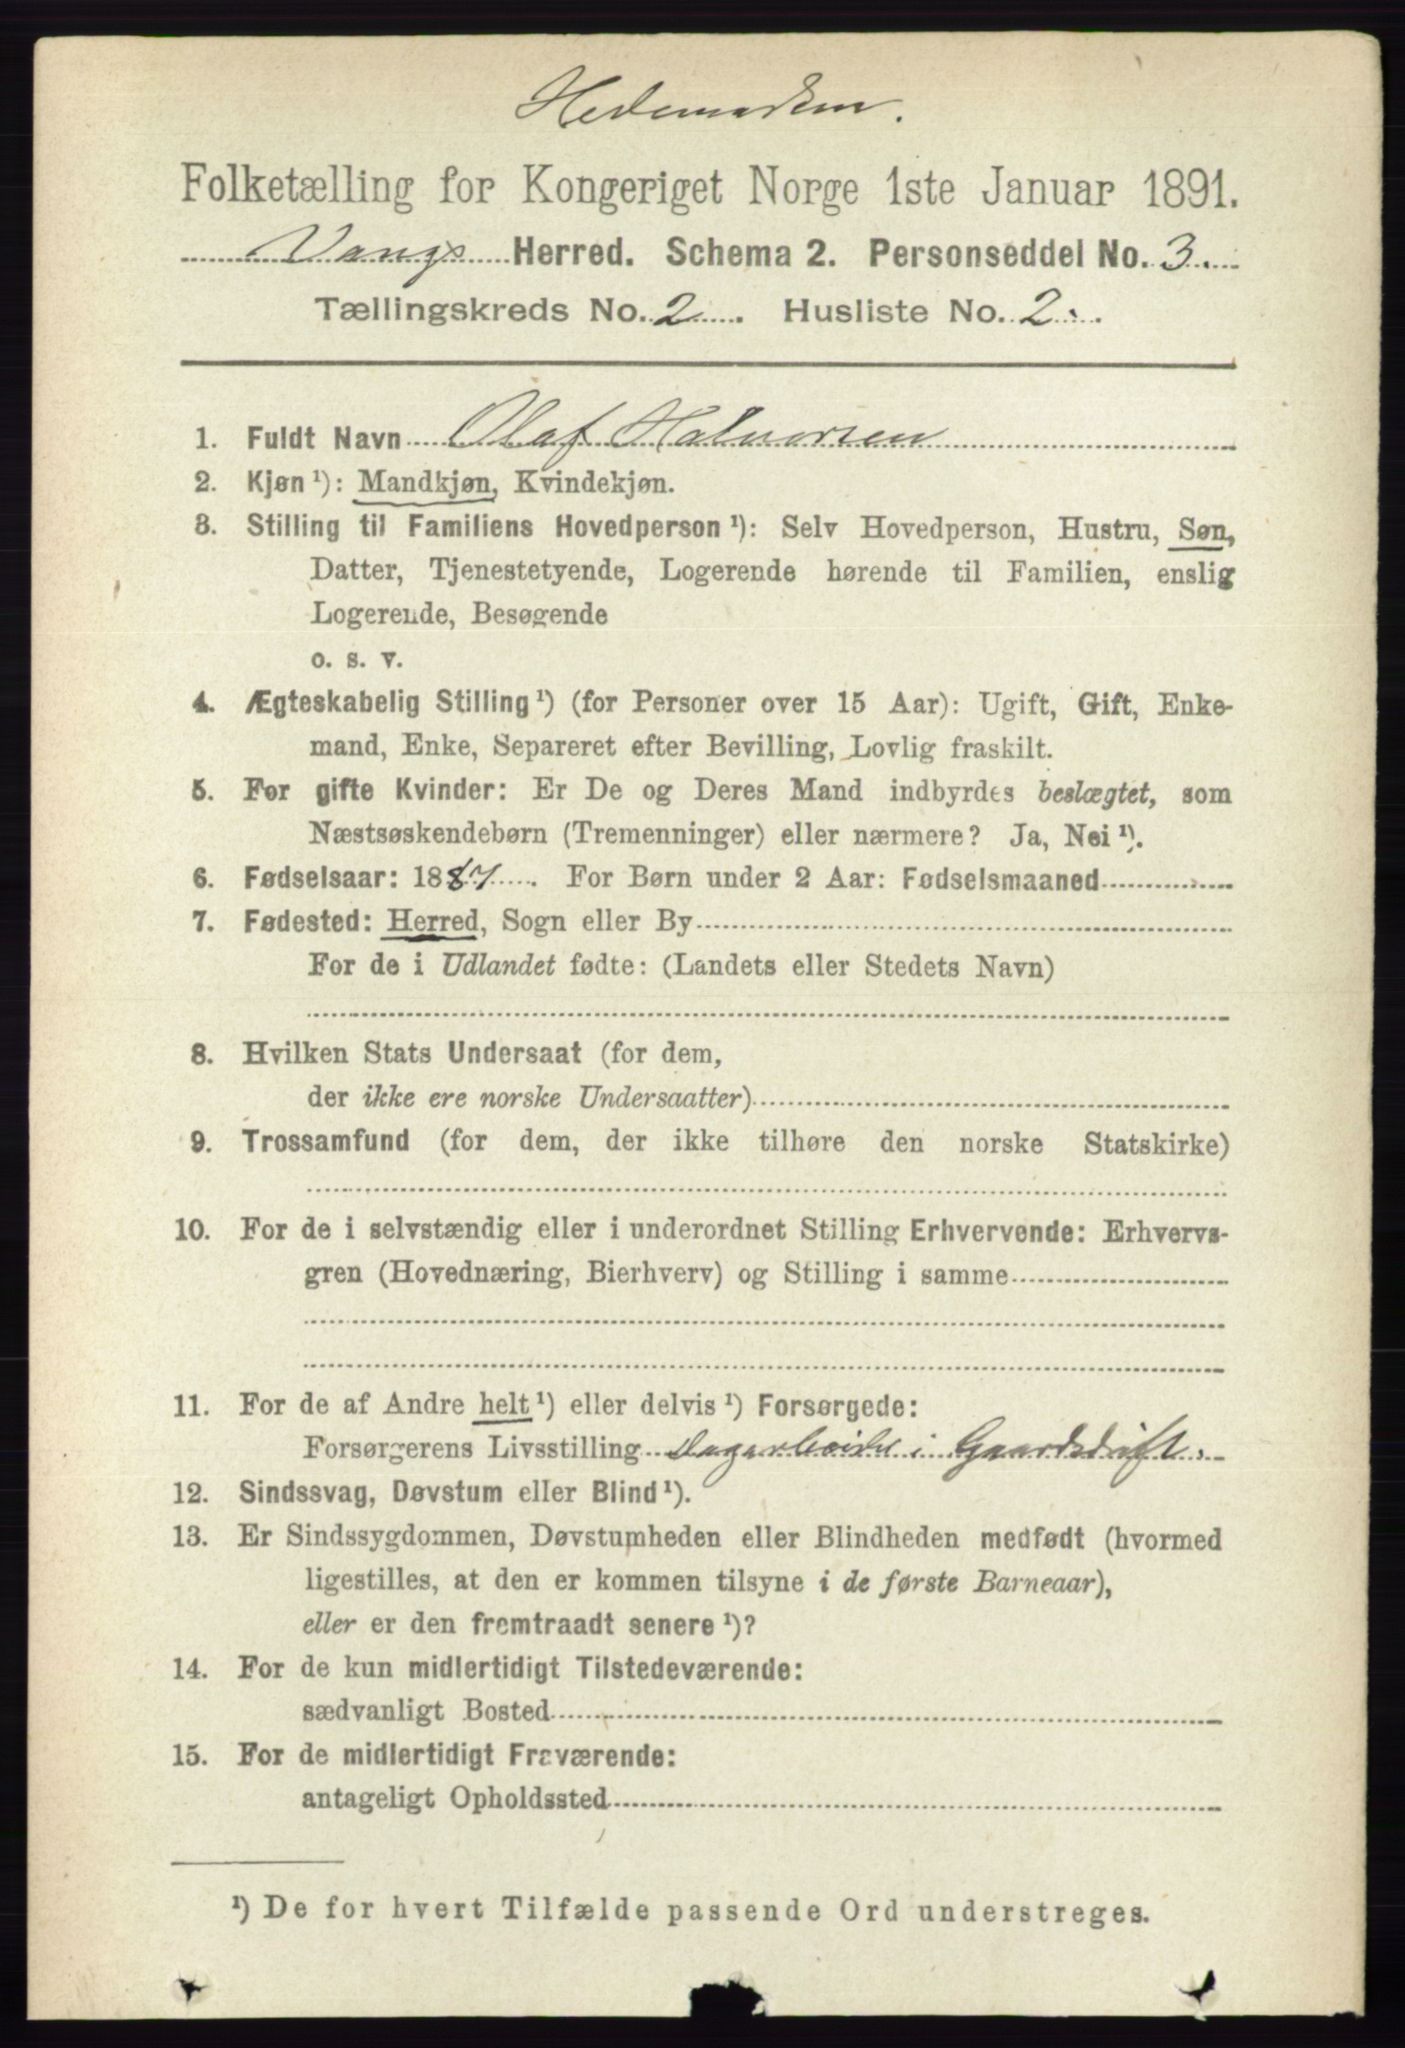 Hedemarken.
Folketælling for Kongeriget Norge 1ste Januar 1891.
Vangs Herred. Schema 2. Personseddel No. 3.
Tællingskreds No. 2. Husliste No. 2.
1. Fuldt Navn Olaf Halvorsen
2. Kjøn ¹): Mandkjøn, Kvindekjøn.
3. Stilling til Familiens Hovedperson ¹): Selv Hovedperson, Hustru, Søn,
Datter, Tjenestetyende, Logerende hørende til Familien, enslig
Logerende, Besøgende
o. s. v.
4. Ægteskabelig Stilling ¹) (for Personer over 15 Aar): Ugift, Gift, Enke-
mand, Enke, Separeret efter Bevilling, Lovlig fraskilt.
5. For gifte Kvinder: Er De og Deres Mand indbyrdes beslægtet, som
Næstsøskendebørn (Tremenninger) eller nærmere? Ja, Nei ¹).
6. Fødselsaar: 1887. For Børn under 2 Aar: Fødselsmaaned
7. Fødested: Herred, Sogn eller By
For de i Udlandet fødte: (Landets eller Stedets Navn)
8. Hvilken Stats Undersaat (for dem,
der ikke ere norske Undersaatter)
9. Trossamfund (for dem, der ikke tilhøre den norske Statskirke)
10. For de i selvstændig eller i underordnet Stilling Erhvervende: Erhvervs-
gren (Hovednæring, Bierhverv) og Stilling i samme
11. For de af Andre helt ¹) eller delvis ¹) Forsørgede:
Forsørgerens Livsstilling Dagarbeider i Gaardsdrift.
12. Sindssvag, Døvstum eller Blind ¹).
13. Er Sindssygdommen, Døvstumheden eller Blindheden medfødt (hvormed
ligestilles, at den er kommen tilsyne i de første Barneaar),
eller er den fremtraadt senere ¹)?
14. For de kun midlertidigt Tilstedeværende:
sædvanligt Bosted
15. For de midlertidigt Fraværende:
antageligt Opholdssted
¹) De for hvert Tilfælde passende Ord understreges.